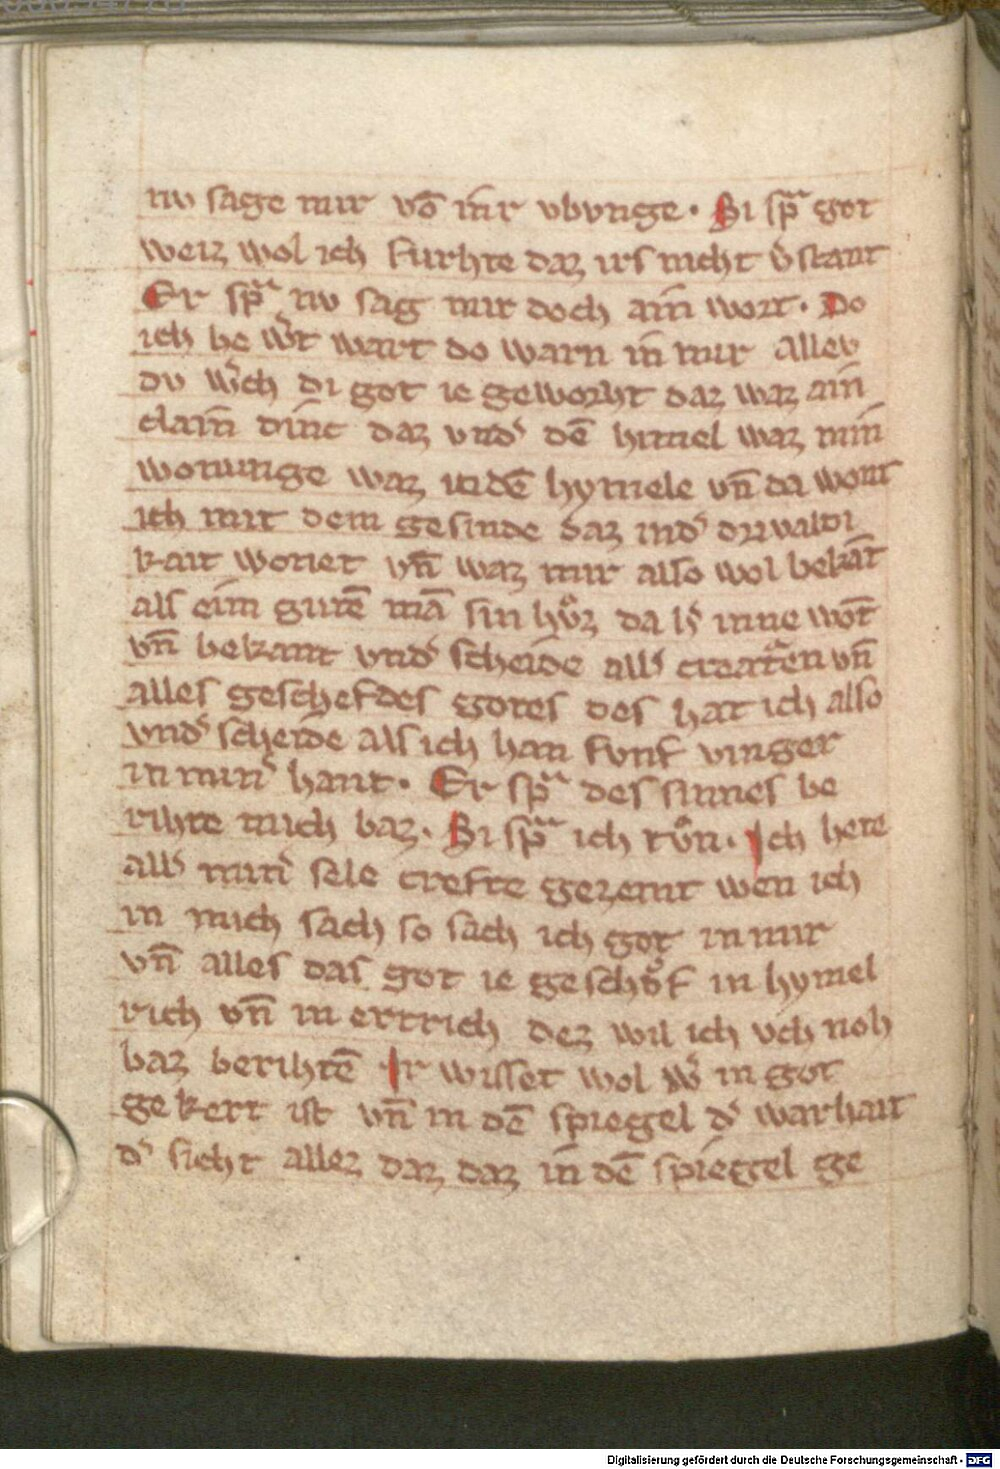 nv sage mir vō in̄r vbvnge · Si sp̄ᵃ got
weiz wol ich furhte daz irs nicht v̉stant
Er sp̄ᵃ nv sag mir doch ain̄ wort · Do
ich be w̉t wart do warn in mir allev
dv w̉ch di got ie geworht daz waz ain̄
clain̄ dinc daz vnd̓ dē himel waz min̄
wonunge waz indē hymele vn̄ da wont
ich mit dem gesinde daz ind̓ drivalti
kait wonet vn̄ waz mir also wol bekāt
als eim gutē mā sin hv̊z da h̓ inne wōt
vn̄ bekant vnd̓ scheide all̓ creat̉en vn̄
alles geschefdes gotes des hat ich also
vnd̓ scheide als ich han fvnf vinger
in min̓ hant · Er sp̄ᵃ des sinnes be
rihte mich baz · Si sp̄ᵃ ich tv̊n · Ich hete
all̓ min̓ sele crefte gezemt wen ich
in mich sach so sach ich got in mir
vn̄ alles das got ie geschv̊f in hymel
rich vn̄ in ertrich dez wil ich vch noh
baz berihtē Ir wisset wol w̉ in got
gekert ist vn̄ in dē spiegel d̓ warhait
d̓ sicht allez daz daz in dē spiegel ge